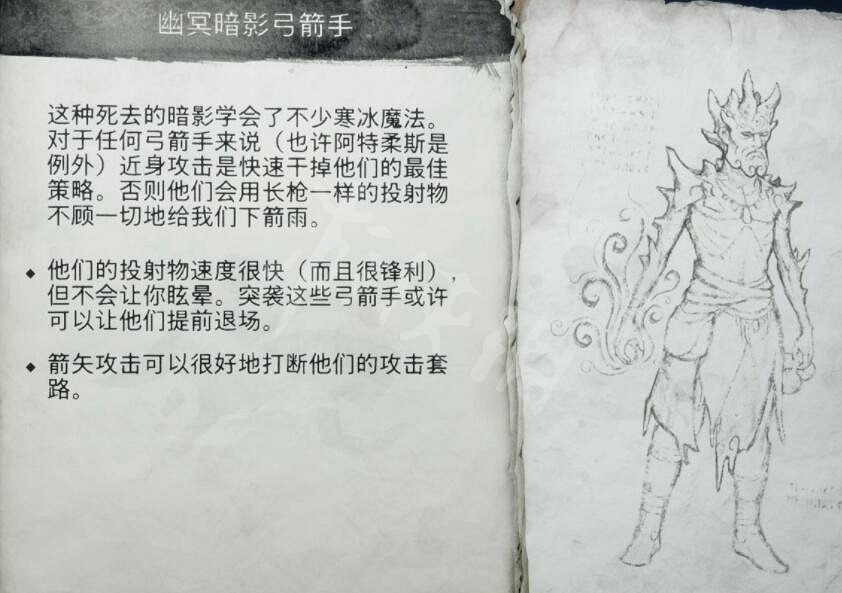 幽冥暗影弓箭手
这种死去的暗影学会了不少寒冰魔法。
对于任何弓箭手来说（也许阿特柔斯是
例外）近身攻击是快速干掉他们的最佳
策略。否则他们会用长枪一样的投射物
不顾一切地给我们下箭雨。
◆ 他们的投射物速度很快（而且很锋利），
但不会让你眩晕。突袭这些弓箭手或许
可以让他们提前退场。
◆ 箭矢攻击可以很好地打断他们的攻击套
路。